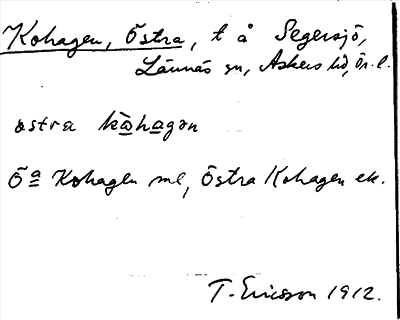 Kohagen, Östra, t å Segersjö,
Lännäs sn, Askers hd, Ör. l.
östra kòhagan
Öª Kohagen me, Östra Kohagen ek.
T. Ericsson 1912.